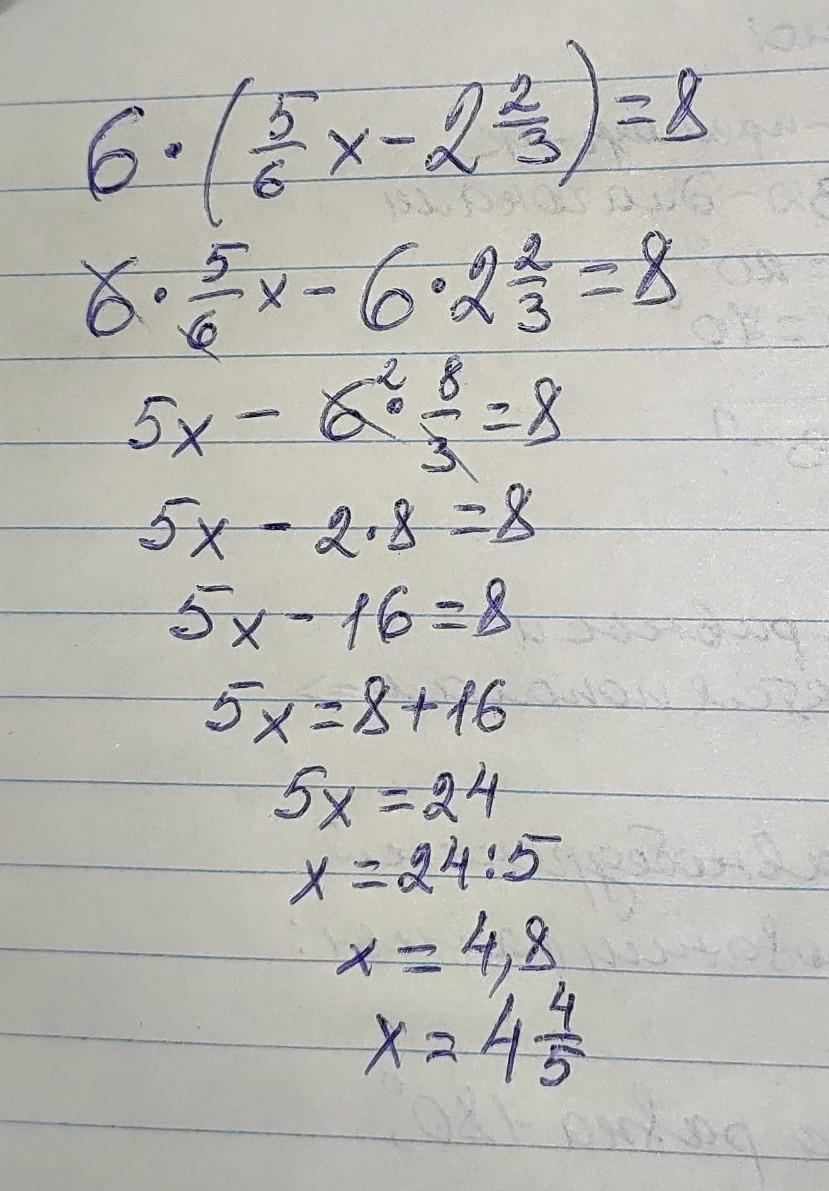 6·(5/6 x - 2 2/3) = 8
6·5/6 x - 6·2 2/3 = 8
5x - 6² · 8/3 = 8
5x - 2·8 = 8
5x - 16 = 8
5x = 8 + 16
5x = 24
x = 24:5
x = 4,8
x = 4 4/5